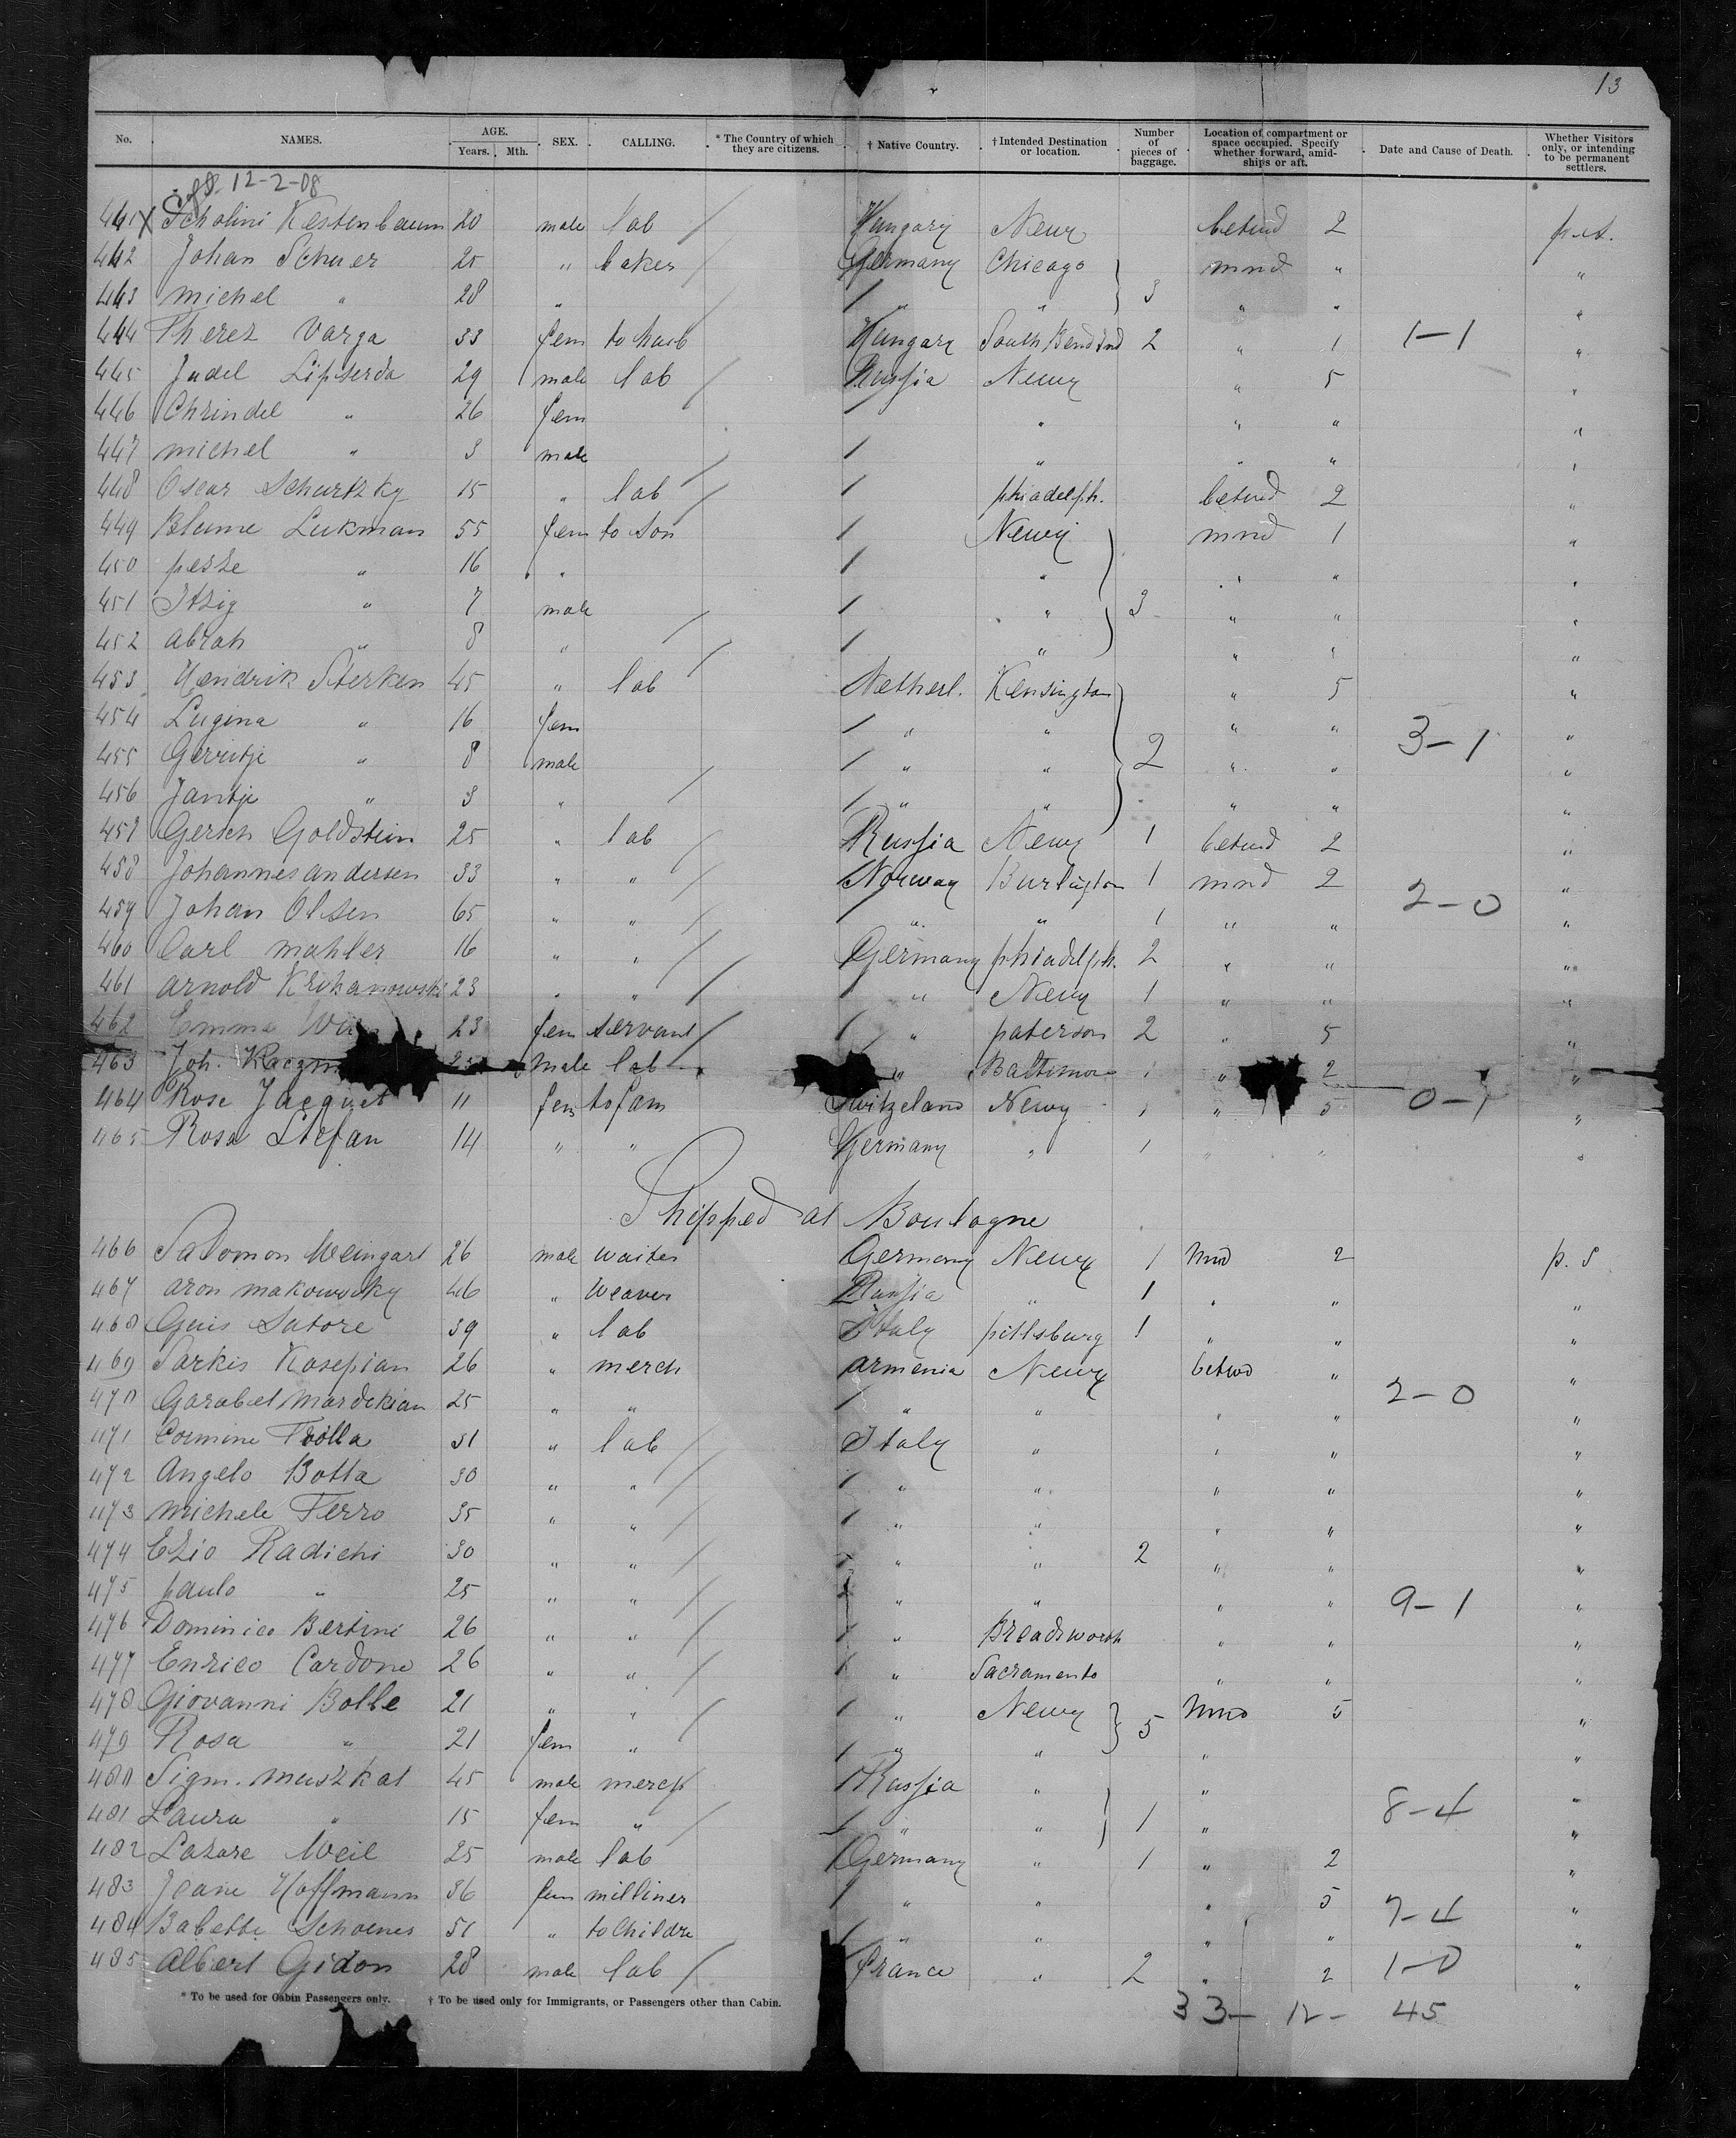 13
No. NAMES. AGE. Years. Mth. SEX. CALLING. * The Country of which they are citizens. † Native Country. † Intended Destination or location. Number of pieces of baggage. Location of compartment or space occupied. Specify whether forward, amidships or aft. Date and Cause of Death. Whether Visitors only, or intending to be permanent settlers.
12-2-08
441 X Scholini Kestenbaum 20 male lab / Hungary Newy betwd 2
442 Johan Schuer 25 " baker / Germany Chicago mnd " "
443 michel " 28 " / " " 3 " " "
444 Therez Varga 33 fem to husb Hungary South Bend Ind 2 " 1 1-1 "
445 Judel Lipserda 29 male lab / Russia Newy " 5 "
446 Chrindel " 26 fem / " " " "
447 michel " 3 male / / " " " "
448 Oscar Schurtzky 15 " lab / / phiadelph. betwd 2 "
449 Blume Lukman 55 fem to son / Newy mnd 1 "
450 pesse " 16 " / " " " "
451 Itzig " 7 male / " 3 " " "
452 abrah " 8 " / / " " " "
453 Hendrik Sterken 45 " lab / Netherl. Kensington " 5 "
454 Lugina " 16 fem / " " " " 3-1 "
455 Gerritje " 8 male / " " 2 " " "
456 Jantje " 3 " / / " " " " "
457 Gersch Goldstein 25 " lab / Russia Newy 1 betwd 2 "
458 Johannes andersen 33 " " / Norway Burlington 1 mnd 2 2-0 "
459 Johan Olsen 65 " " / / " " 1 " " "
460 Carl mahler 16 " " / Germany phiadelph. 2 " " "
461 arnold Krukanowski 23 " " / / " Newy 1 " " "
462 Emma 23 fem servant / / " paterson 2 " 5 "
463 Joh. male lab " Baltimore 1 " 2 "
464 Rosa Jacquet 11 fem to fam Switzeland Newy 1 " 5 0-1 "
465 Rosa Stefan 14 " " Germany " 1 " " "
Shipped at Boulogne
466 Salomon Weingart 26 male waiter Germany Newy 1 mnd 2 p. s
467 aron makowsky 46 " weaver Russia " 1 " " "
468 Guis Satore 39 " lab Italy pittsburg 1 " " "
469 Sarkis Kosepian 26 " merch armenia Newy betwd " "
470 Garabet Mardekian 25 " " / " " " " 2-0 "
471 Cormine Trolla 31 " lab / Italy " " " "
472 Angelo Botta 30 " " / / " " " " "
473 michele Ferro 35 " " / / " " " " "
474 Ezio Radichi 30 " " / / " " 2 " " "
475 paulo " 25 " " / / " " " " 9-1 "
476 Dominico Bertini 26 " " / / " Breadsworth " " "
477 Enrico Cardone 26 " " / / " Sacramento " " "
478 Giovanni Bolle 21 " " / / " Newy 5 mnd 5 "
479 Rosa " 21 fem " / " " " "
480 Sigm. muszkat 45 male merch / / Russia " " "
481 Laura " 15 fem " / / " " 1 " 8-4 "
482 Lazare Weil 25 male lab / Germany " 1 " 2 "
483 Jeane Hoffmann 36 fem milliner / " " " 5 7-4 "
484 Babette Schoener 51 " to childre / " " " " "
485 albert Gidon 28 male lab / / france " 2 " 2 1-0 "
* To be used for Cabin Passengers only. † To be used only for Immigrants, or Passengers other than Cabin.
33- 12- 45